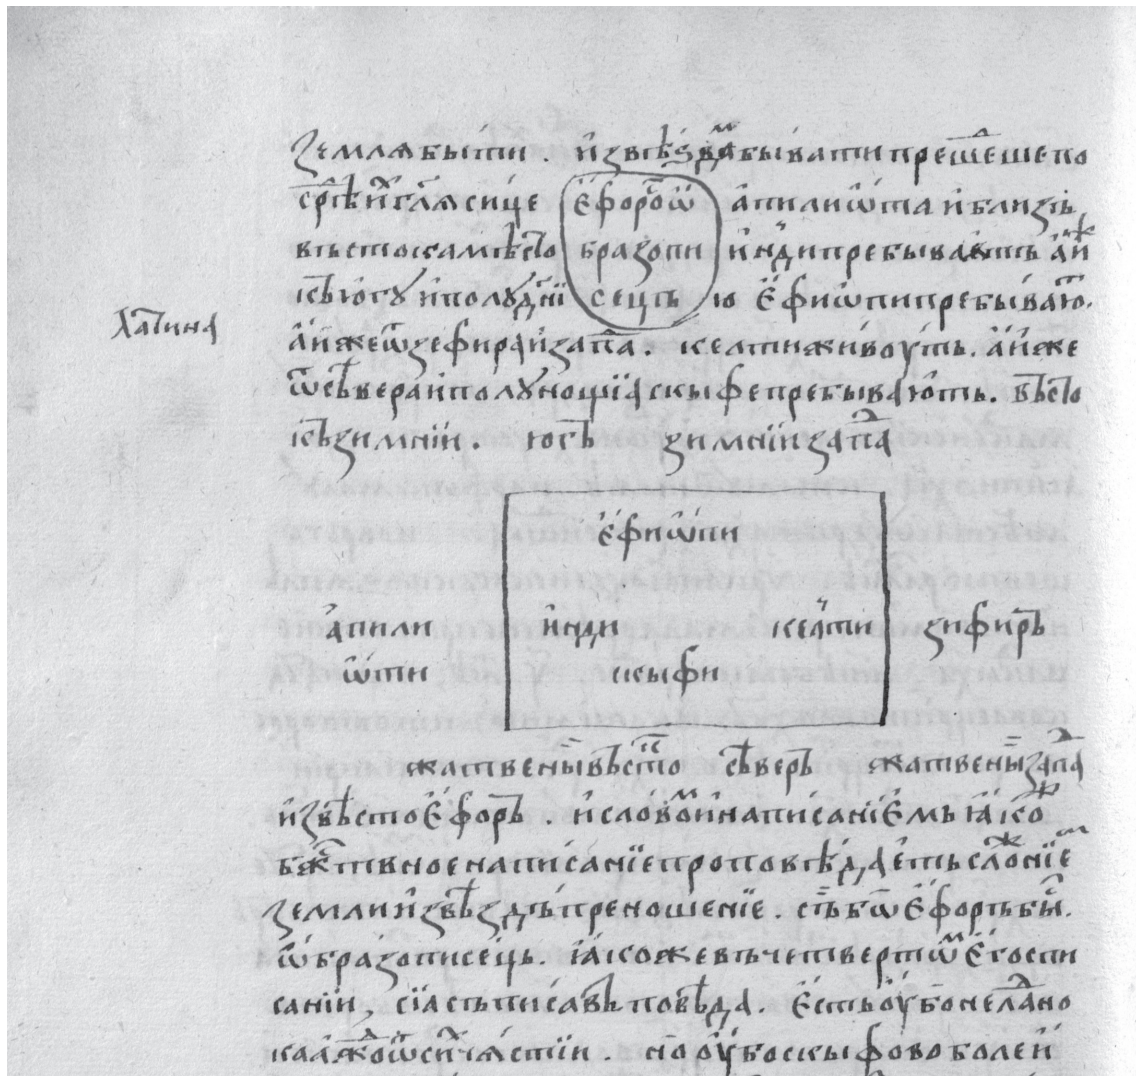 землѧ бы́ти и҆ звѣздⷨа бывати преше́ⷣше по
срⷣѣ и҆ глѧ сице е҆форъ ѿ а҆пилиѡ҆та и҆ близь
въстока мѣсто ѻбразопи и҆нди пребываютъ а҆иⷤ
къ югу и҆ полуⷣнїю сець е҆фиѡ҆пи пребываюⷮ.
Латина
а҆иже ѿ зефира и҆ запаⷣа . келти живоуть . а҆иже
ѿ сѣвера и҆ полунощїа скыфе пребываю҆ть . въсто
къ зимнїи . югъ зимнїи запаⷣ
е҆фиѡ҆пи
а҆пили и҆нди келъти зифиръ
ѡ҆ти скыфи
жатвены въстоⷦ сѣверъ жатвены запаⷣ
и҆звѣсто е҆форъ . и҆ словоⷨ и҆ написанїемь ꙗкоⷤ
бжⷭтвное написанїе проповѣдаеть слоⷤнїеⷨ
земли и҆ звѣздъ преношенїе . съ бо е҆форъ быⷭ .
ѡ҆бразописець . ꙗкоже въ четвертѡⷨ его спи
санїи , сїа съписавъ повѣда . е҆сть оу҆бо не лⷣано
каѧждо ѿ сиⷯ чѧстїи . но оу҆бо скыфово болеи